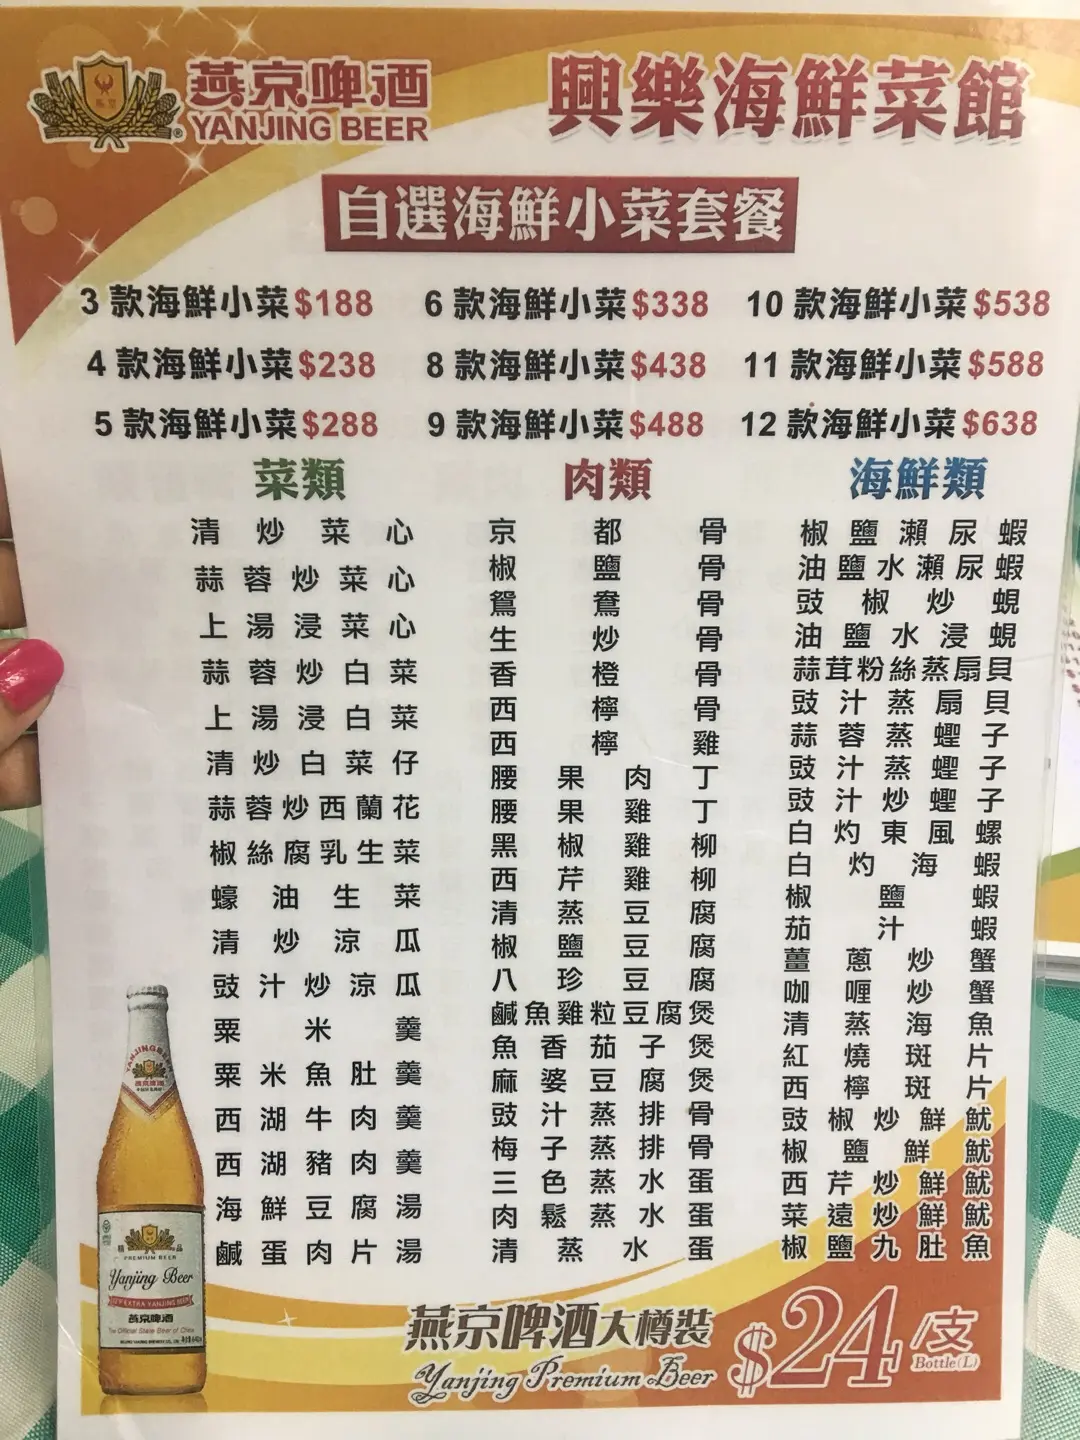 燕京啤酒
YANJING BEER
興樂海鮮菜館
自選海鮮小菜套餐
3 款海鮮小菜$188
6 款海鮮小菜$338
10 款海鮮小菜$538
4 款海鮮小菜$238
8 款海鮮小菜$438
11 款海鮮小菜$588
5 款海鮮小菜$288
9 款海鮮小菜$488
12 款海鮮小菜$638
菜類
清炒菜心
蒜蓉炒菜心
上湯浸菜心
蒜蓉炒白菜
上湯浸白菜
清炒白菜仔
蒜蓉炒西蘭花
椒絲腐乳生菜
蠔油生菜
清炒涼瓜
豉汁炒涼瓜
粟米羹
粟米魚肚羹
西湖牛肉羹
西湖豬肉羹
海鮮豆腐湯
鹹蛋肉片湯
肉類
京都骨
椒鹽骨
鴛鴦骨
生炒骨
香橙骨
西檸骨
西檸雞
腰果肉丁
腰果雞丁
黑椒雞柳
西芹雞柳
清蒸豆腐
椒鹽豆腐
八珍豆腐
鹹魚雞粒豆腐煲
魚香茄子煲
麻婆豆腐煲
豉汁蒸排骨
梅子蒸排骨
三色蒸水蛋
肉鬆蒸水蛋
清蒸水蛋
海鮮類
椒鹽瀨尿蝦
油鹽水瀨尿蝦
豉椒炒蜆
油鹽水浸蜆
蒜茸粉絲蒸扇貝
豉汁蒸扇貝
蒜蓉蒸蟶子
豉汁蒸蟶子
豉汁炒蟶子
白灼東風螺
白灼海蝦
椒鹽蝦
茄汁蝦
薑蔥炒蟹
咖喱炒蟹
清蒸海魚
紅燒斑片
西檸斑片
豉椒炒鮮魷
椒鹽鮮魷
西芹炒鮮魷
菜遠炒鮮魷
椒鹽九肚魚
YANJING BEER
燕京啤酒
精品
PREMIUM BEER
Yanjing Beer
燕京啤酒
The Official State Beer of China
燕京啤酒大樽裝
Yanjing Premium Beer
$24/支
Bottle(L)